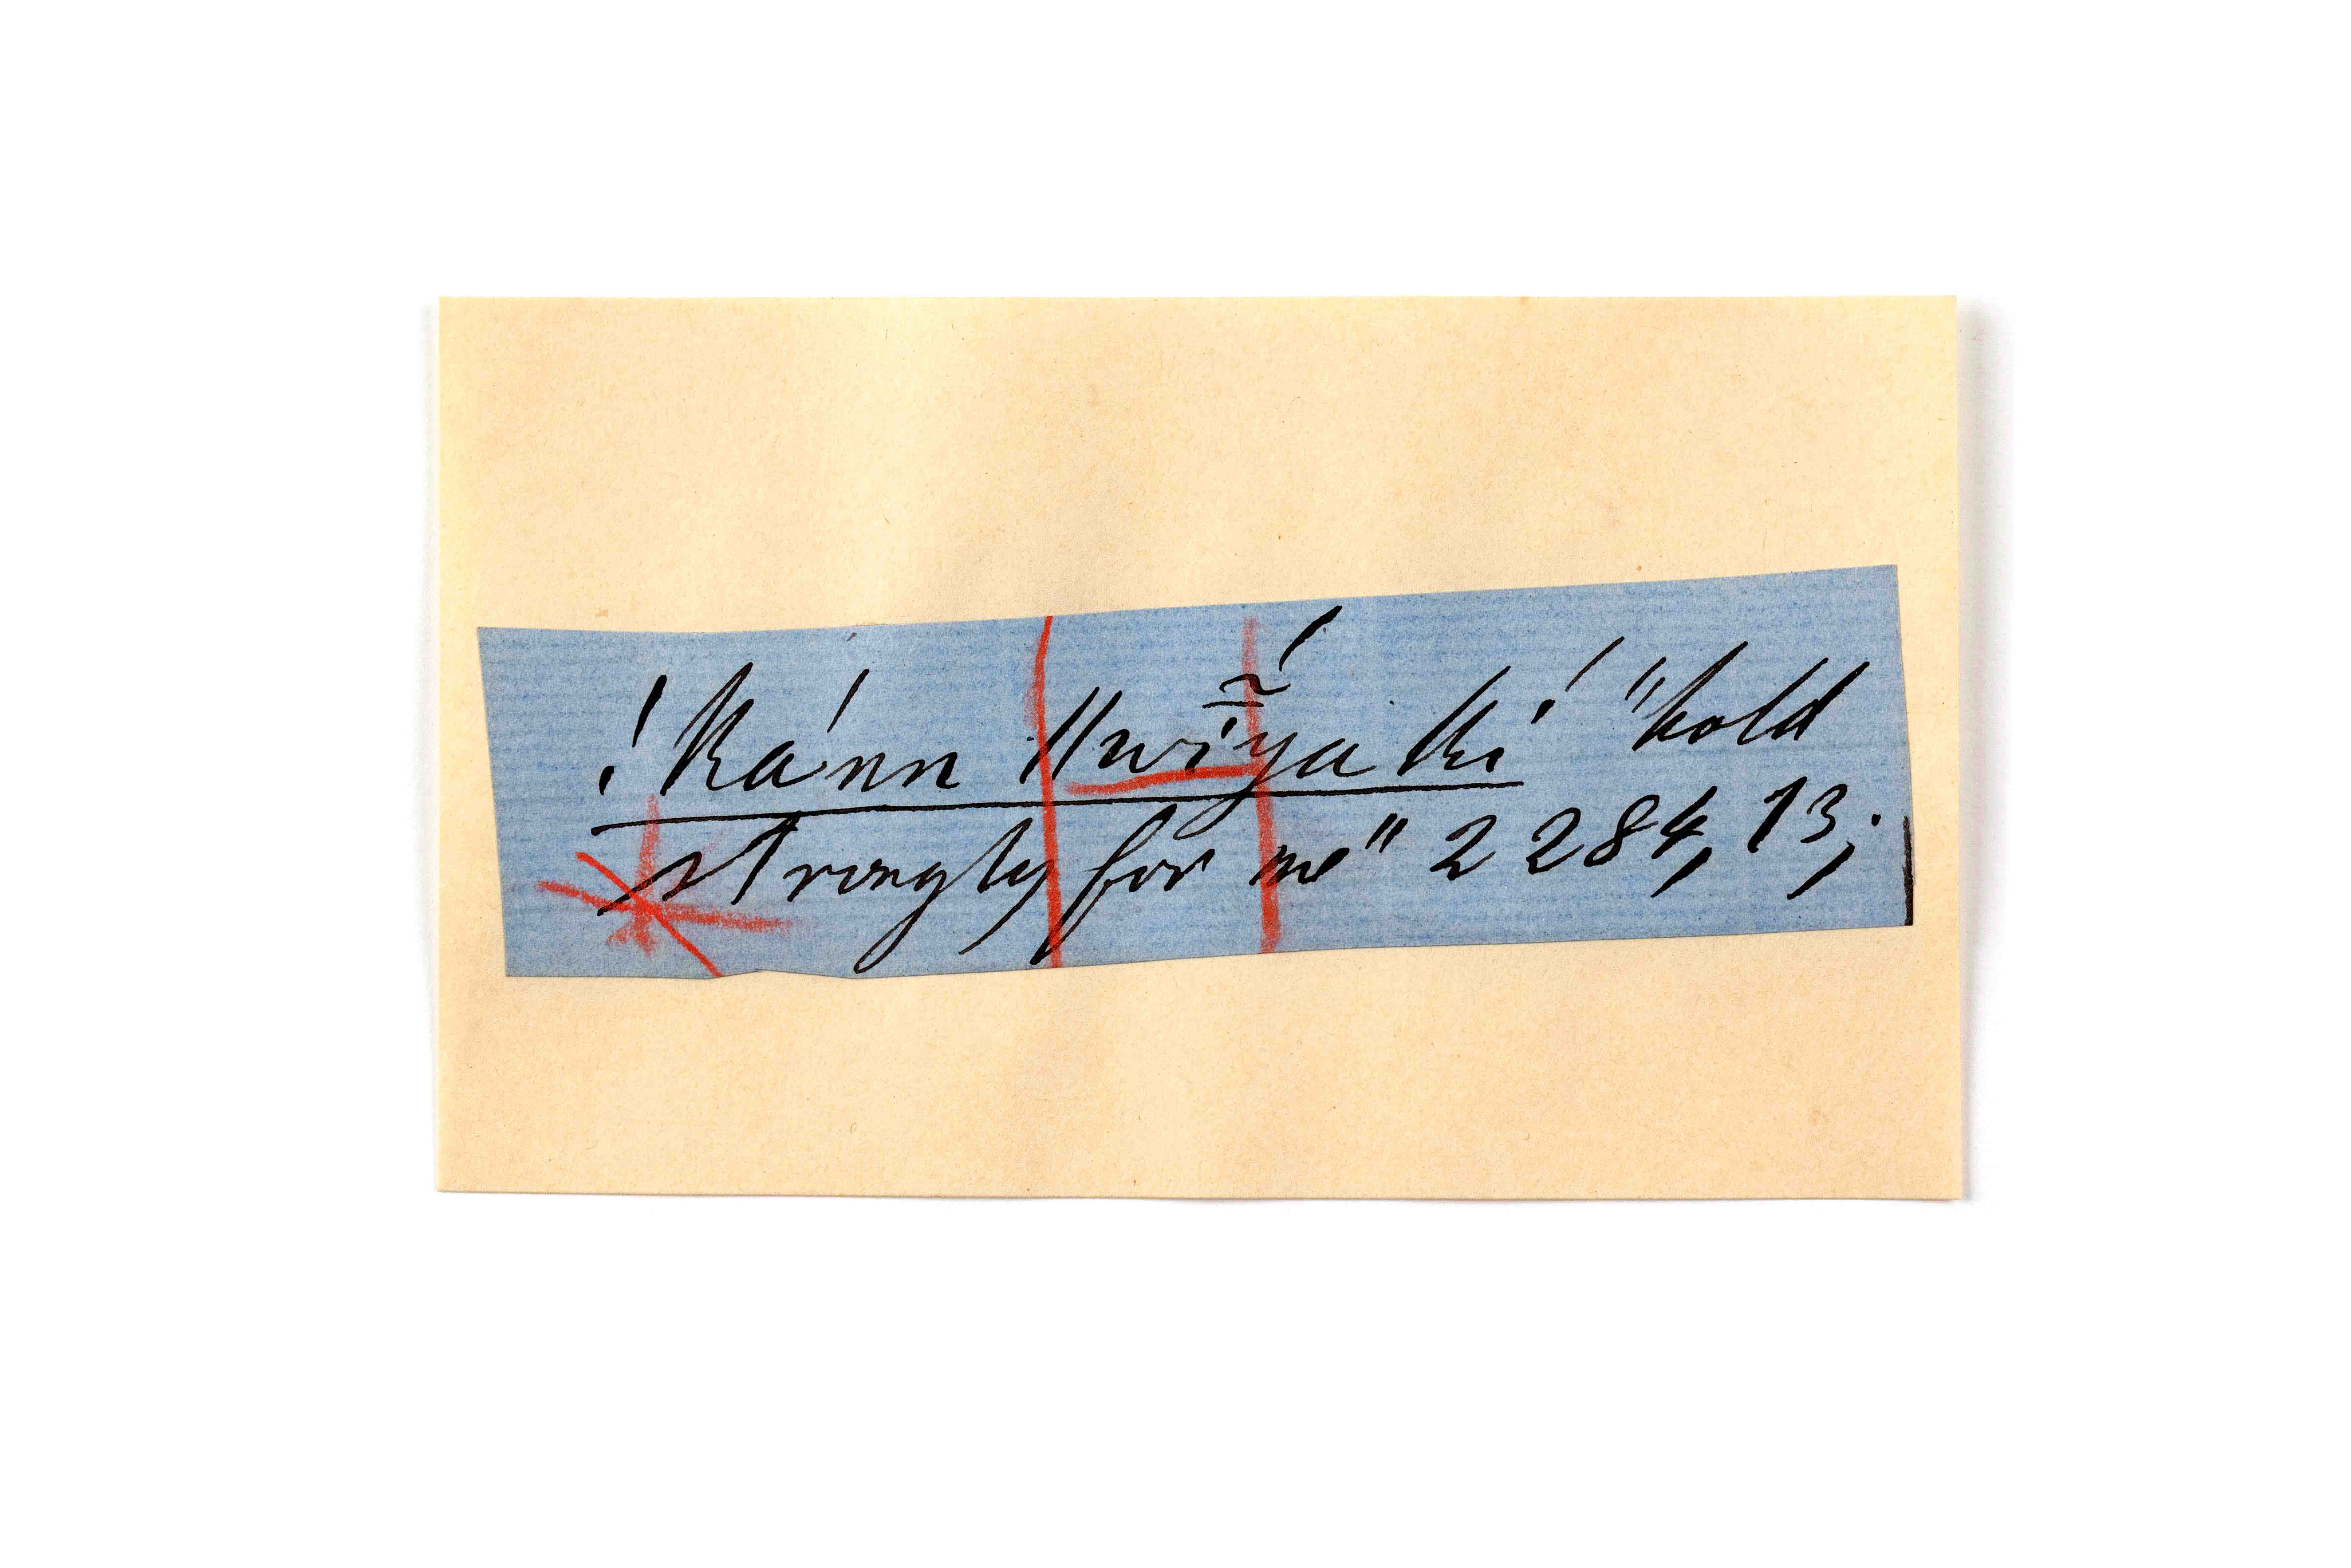 !kánn ǁwī̃́ya kí "hold
strongly for me" 2284, 13;